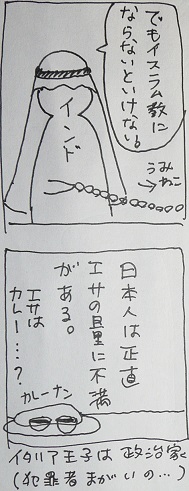 でもイスラム教に
ならないといけない。
インド
うみ
ねこ
日本人は正直
エサの量に不満
がある。
エサは
カレー…?
カレーナン
イタリア王子は政治家
(犯罪者まがいの…)